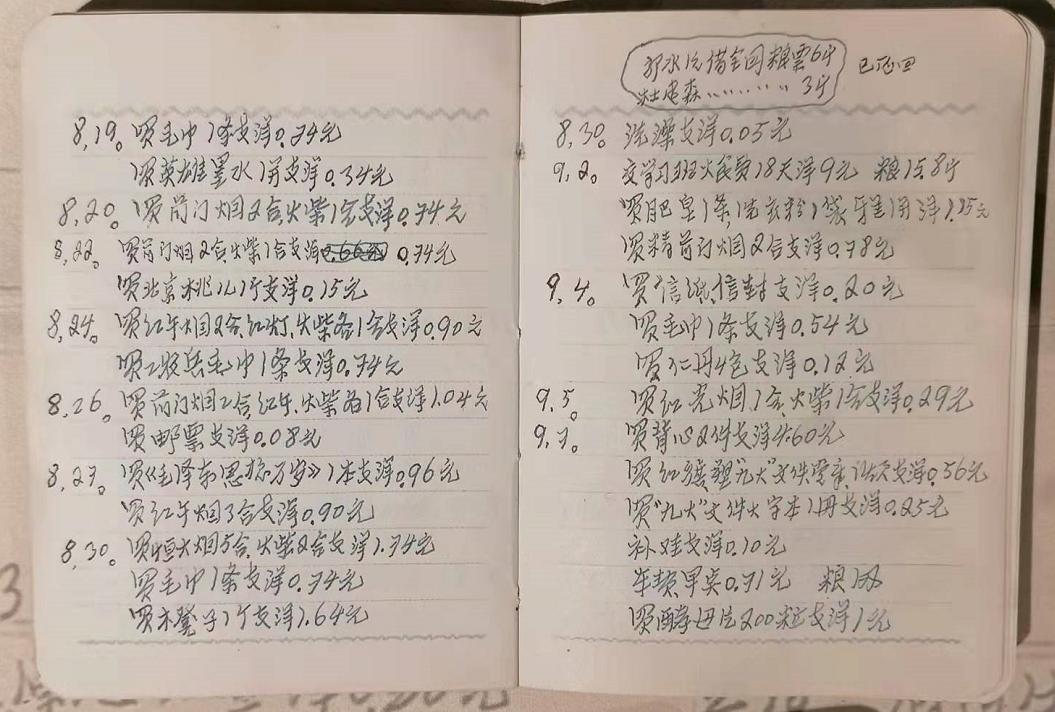 8,19。买毛巾1条支洋0.74元
买英雄墨水1并支洋0.34元
8,20。买前门烟2合,火柴1合支洋0.74元
8,22。买前门烟2合火柴1合支洋 0.74元
买北京桃儿1斤支洋0.15元
8,24。买红牛烟2合,红灯,火柴各1合支洋0.90元
买工农兵毛巾1条支洋0.74元
8,26。买前门烟2合,红牛,火柴各1合支洋1.04元
买邮票支洋0.08元
8,27。买《毛泽东思想万岁》1本支洋0.96元
买红牛烟3合支洋0.90元
8,30。买恒大烟5合,火柴2合支洋1.74元
买毛巾1条支洋0.74元
买木凳子1个支洋1.64元
水 借全国粮票6斤 已还回
杜 森〃〃〃〃 3斤
8,30。洗澡支洋0.05元
9,2。交学习班火食费18天洋9元 粮15.8斤
买肥皂1条,洗衣粉1袋 洋1.15元
买精前门烟2合支洋0.78元
9,4。买信纸,信封支洋0.20元
买毛巾1条支洋0.54元
买仁丹4包支洋0.12元
9,5。买红光烟1合,火柴1合支洋0.29元
9,7。买背心2件支洋4.60元
买红 塑"九大"文件 支洋0.56元
买"九大"文件大字本1册支洋0.25元
补娃支洋0.10元
0.71元 粮1斤
买酵母片200粒支洋1元